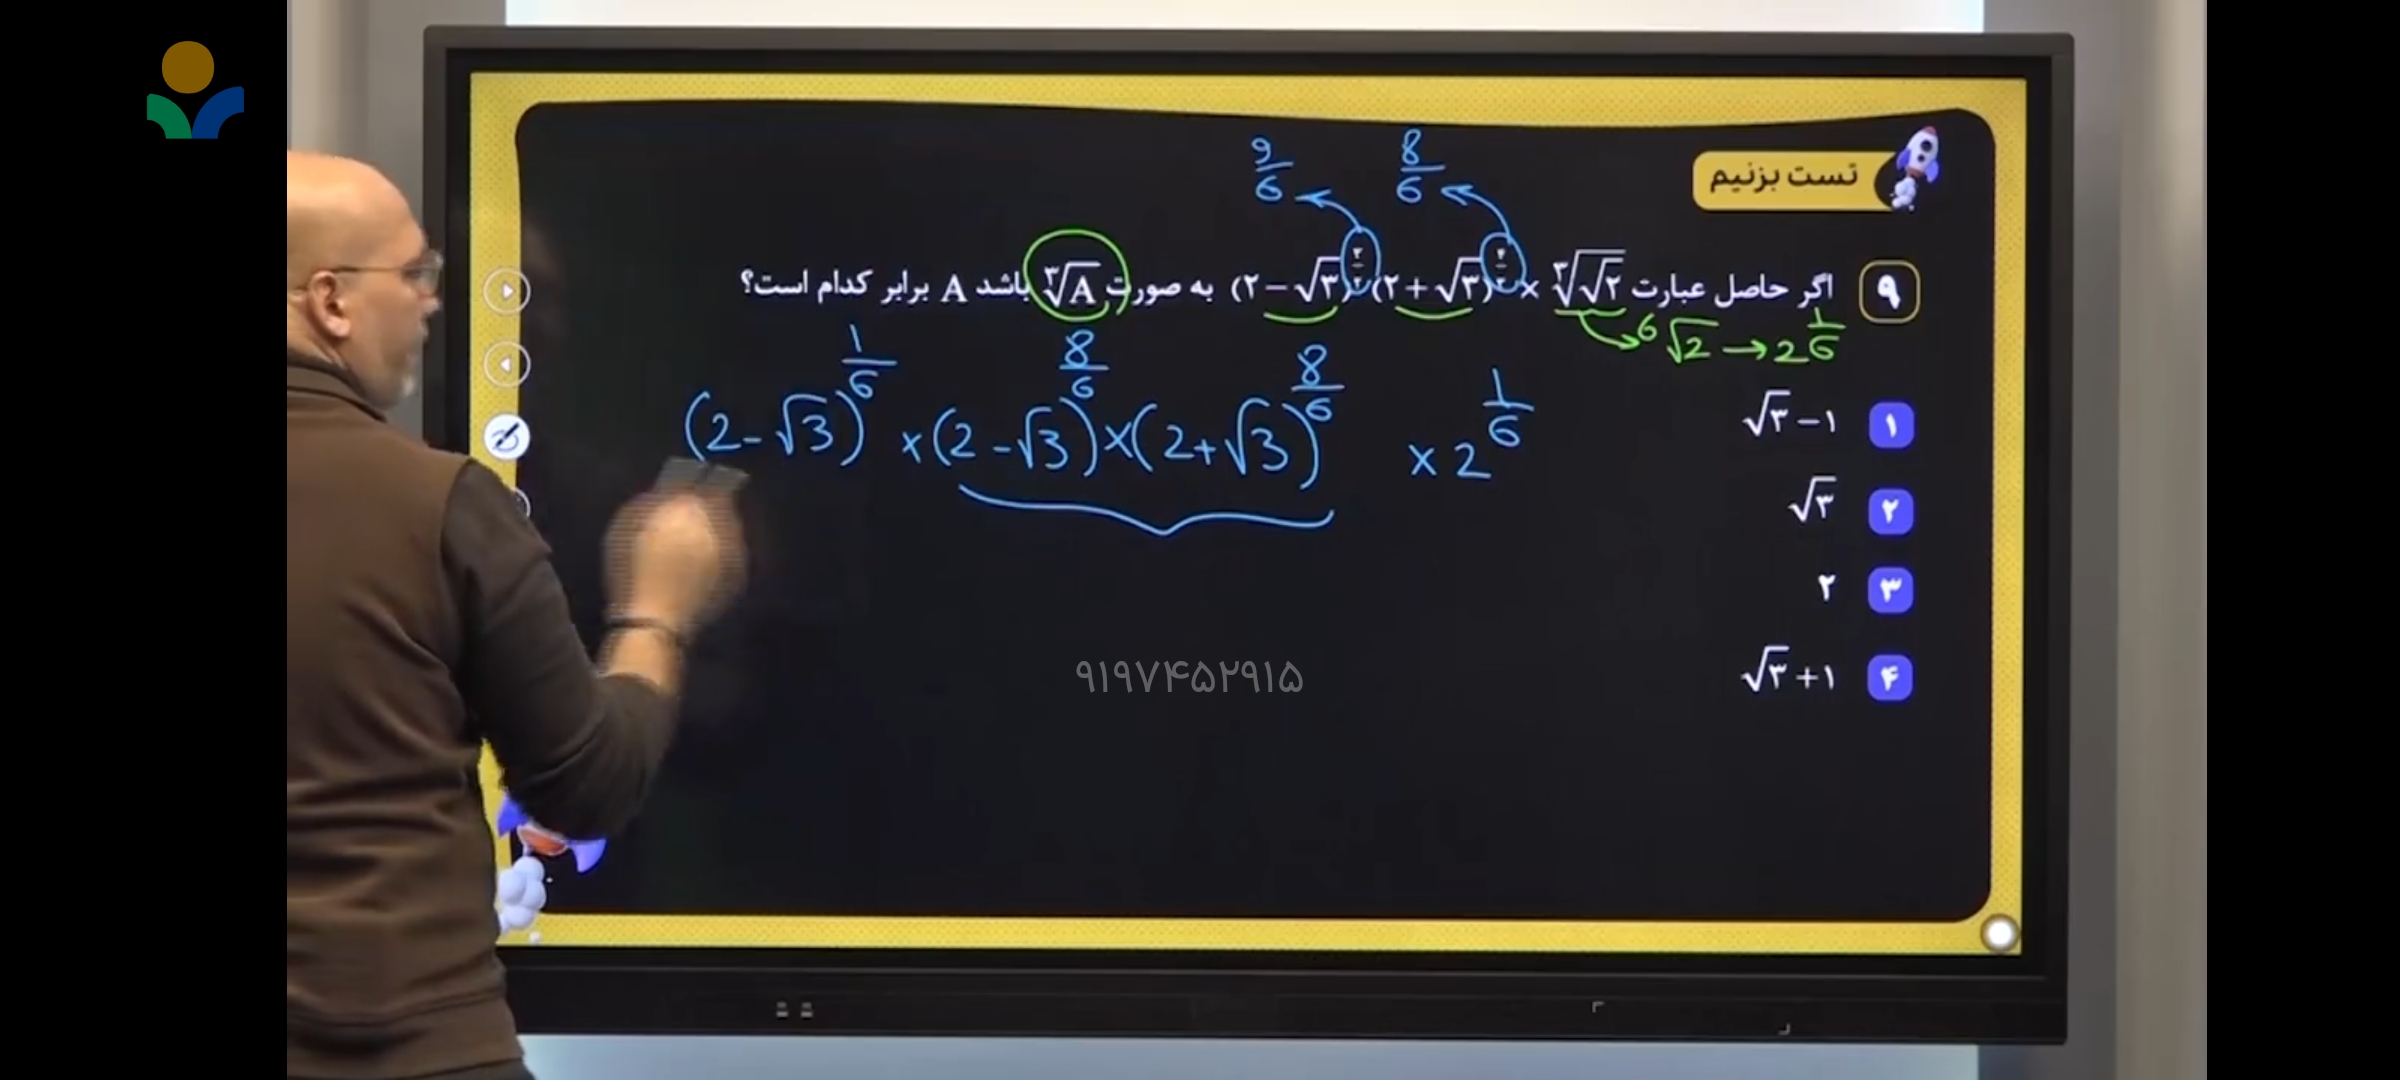 تست بزنیم
9/6 8/6
۹ اگر حاصل عبارت ∛√۲ × (۲+√۳)^(۴/۳) (۲−√۳)^(۳/۲) به صورت ∛A باشد A برابر کدام است؟
⁶√2 → 2^(1/6)
(2-√3)^(1/6) × (2-√3)^(8/6) × (2+√3)^(8/6) × 2^(1/6)
۱ √۳−۱
۲ √۳
۳ ۲
۴ √۳+۱
۹۱۹۷۴۵۲۹۱۵